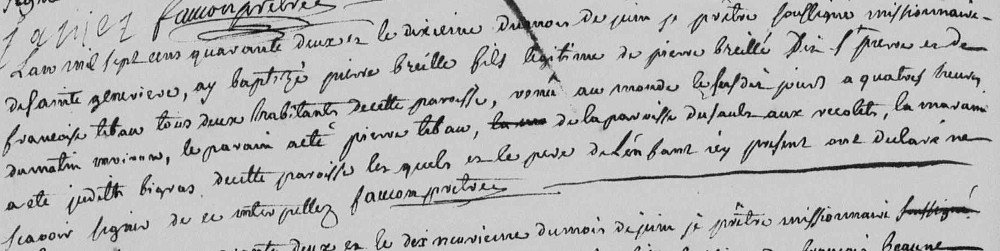 faucon prêtre
Lan mil sept cens quarante deux et le dixieme du mois de juin je prêtre soussigne missionnaire
de sainte genevieve, ay baptizé pierre breillé fils legitime de pierre breillé Dit St pierre et de
francoise tibau tous deux habitants de cette paroisse, venu au monde le susdit jour a quatres heures
du matin environ, le parain a eté pierre tibau, de la paroisse du sault aux recolets, la maraine
a eté judith bigras de cette paroisse les quels et le pere de Lenfant icy present ont declaré ne
scavoir signer de ce interpellez faucon prêtre
quarante deux et le dix neuvieme du mois de juin je prêtre missionnaire soussigné